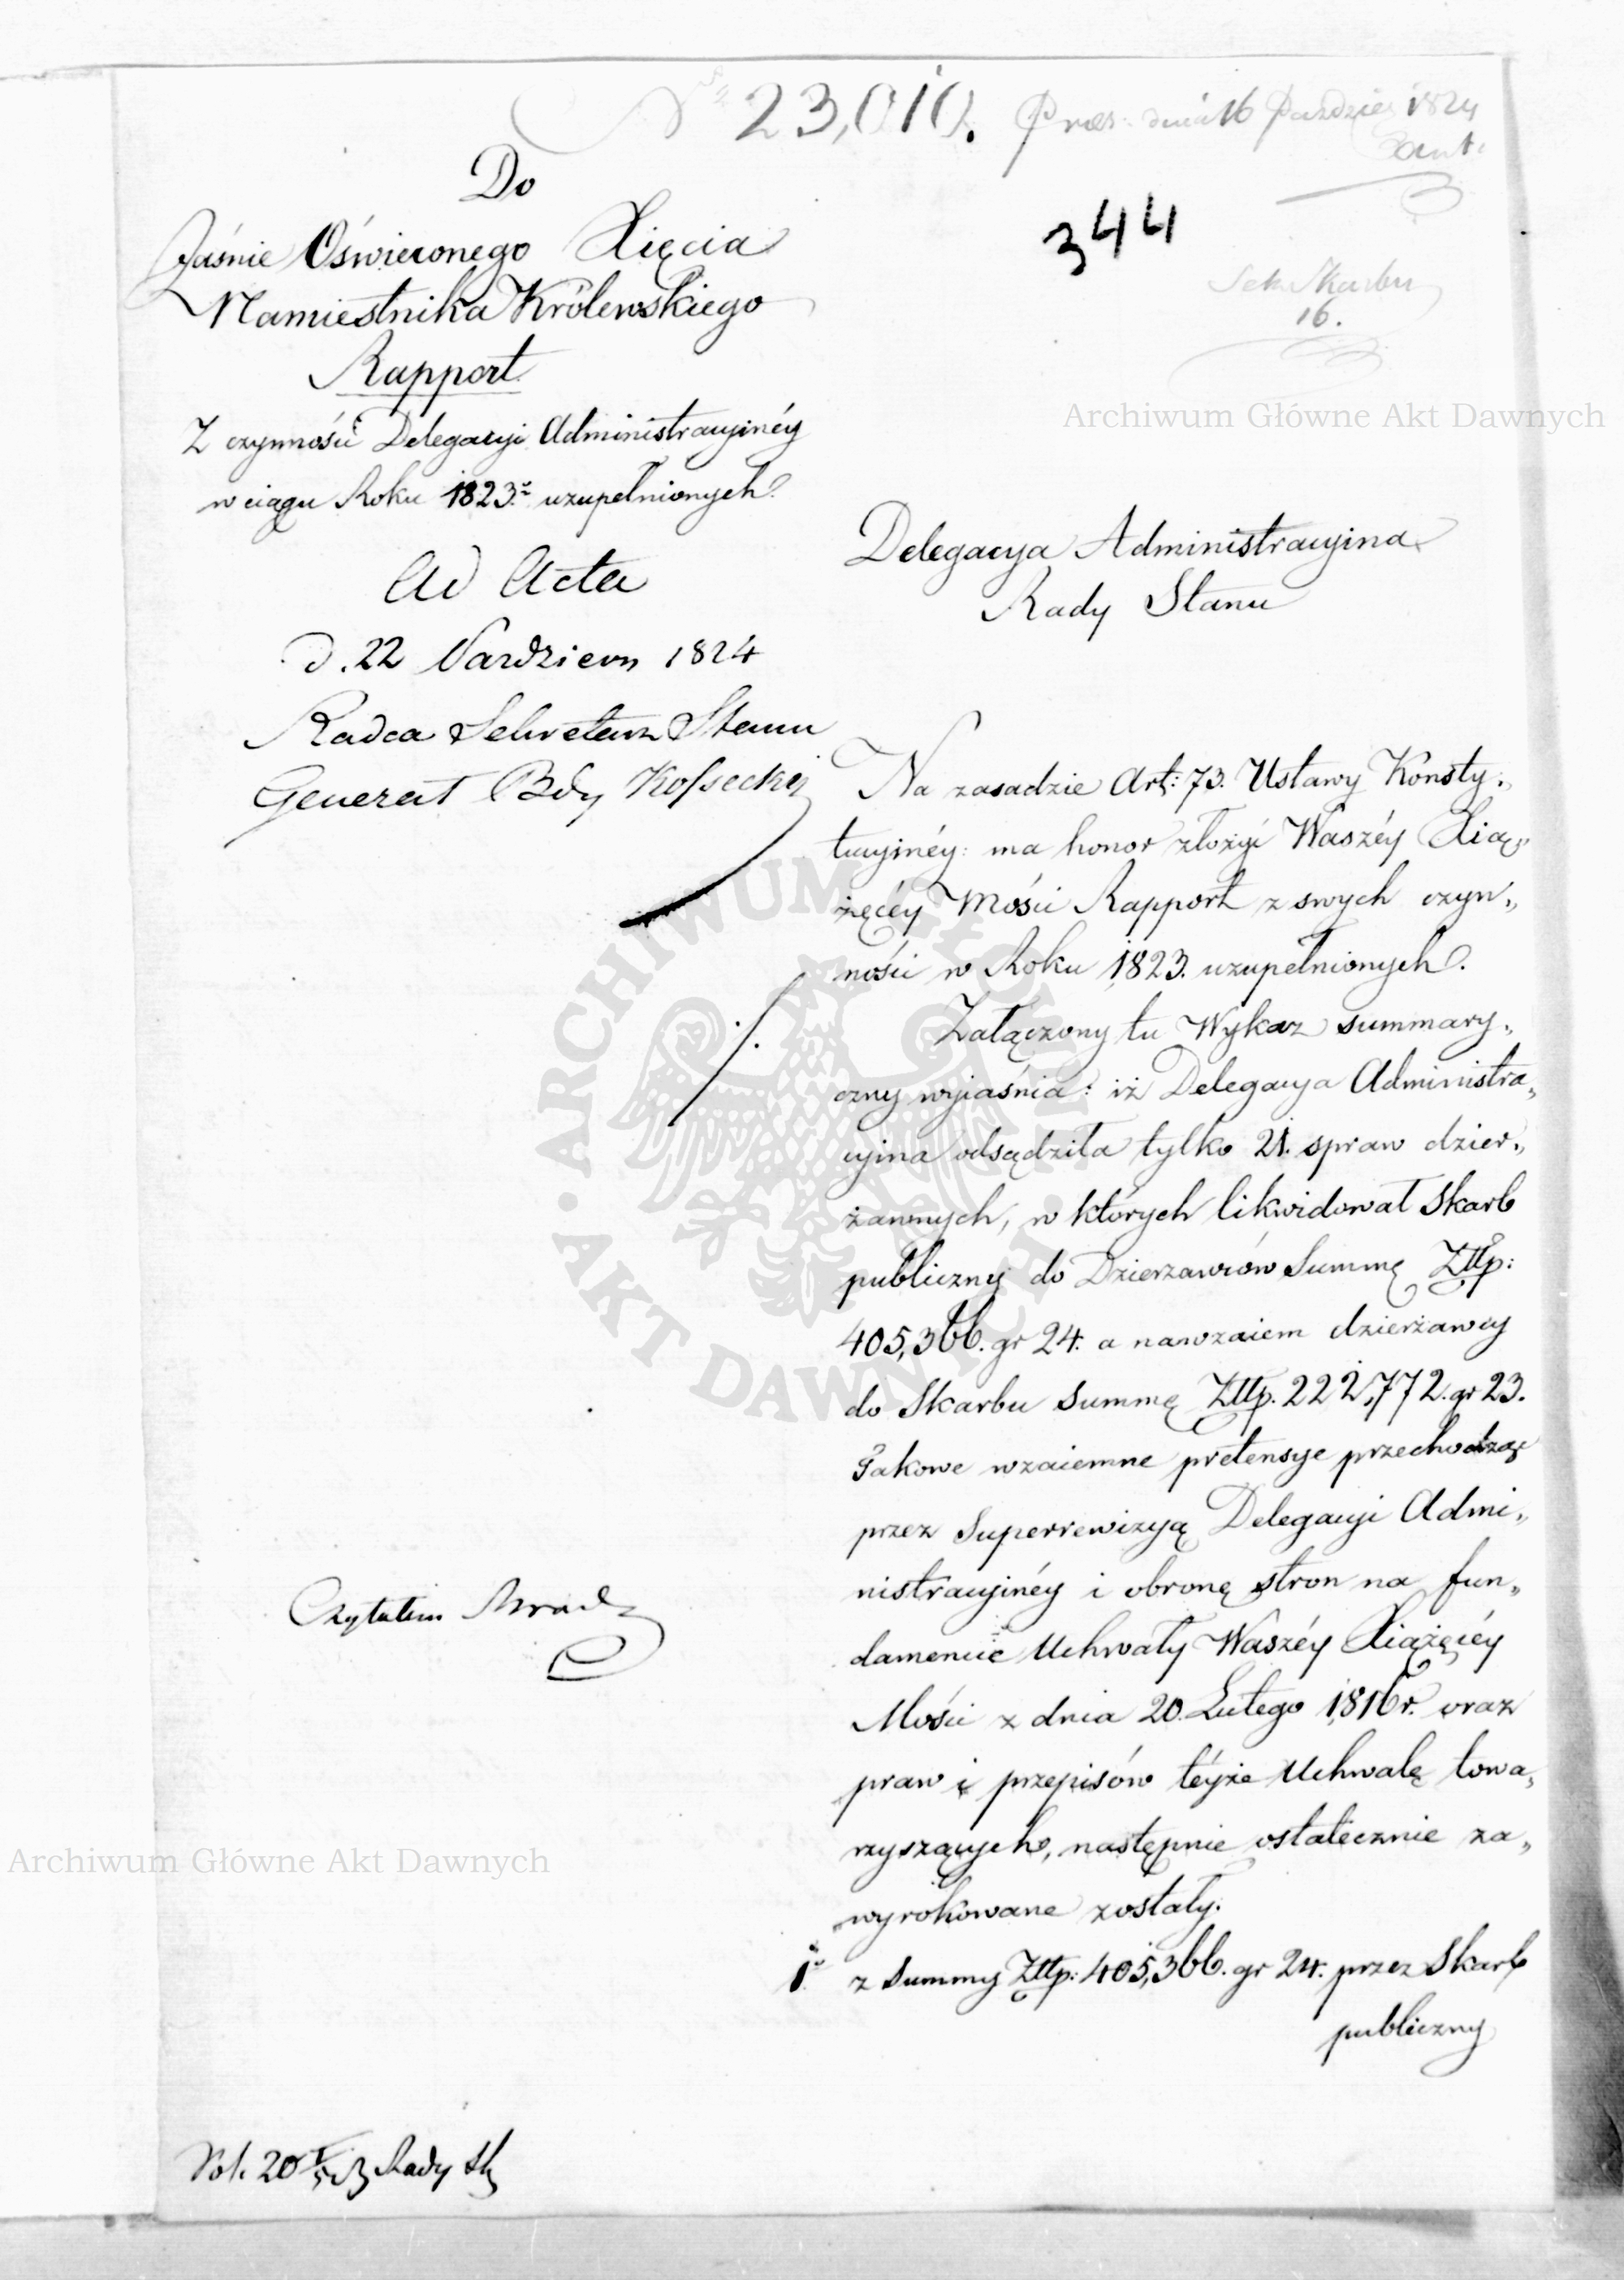 No 23,010. Præs: dnia 16 Paździer 1824
344
Sek. Skarbu
16.
Do
Jaśnie Oświeconego Xięcia
Namiestnika Królewskiego
Rapport
Z czynności Delegacyi Administracyinéy
w ciągu Roku 1823.o uzupełnionych.
Ad Acta
d. 22 Pazdziern 1824
Radca Sekretarz Stanu
Generał Bdy Kossecki
Czytałem
Vol. 20 Rady St
Delegacya Administracyina
Rady Stanu
Na zasadzie Art: 73. Ustawy Konsty„
tucyinéy: ma honor złożyć Waszéy Xią„
żęcéy Mości Rapport z swych czyn„
ności w Roku 1823. uzupełnionych.
Załączony tu Wykaz summary„
czny wyiaśnia: iż Delegacya Administra„
cyina odsądziła tylko 21. spraw dzier„
żawnych, w których likwidował Skarb
publiczny do Dzierżawców Summę Złłp:
405,366. gr 24. a nawzaiem dzierżawcy
do Skarbu Summę Złłp. 222,772. gr 23.
Takowe wzaiemne pretensye przechodząc
przez Superrewizyą Delegacyi Admi„
nistracyinéy i obronę stron na fun„
damencie Uchwały Waszéy Xiążęcéy
Mości z dnia 20. Lutego 1816 r. oraz
praw i przepisów téyże Uchwałę towa„
rzyszących, następnie ostatecznie za„
wyrokowane zostały.
1o z Summy Złłp: 405,366. gr 24. przez Skarb
publiczny
Archiwum Główne Akt Dawnych
Archiwum Główne Akt Dawnych
ARCHIWUM GŁÓWNE AKT DAWNYCH